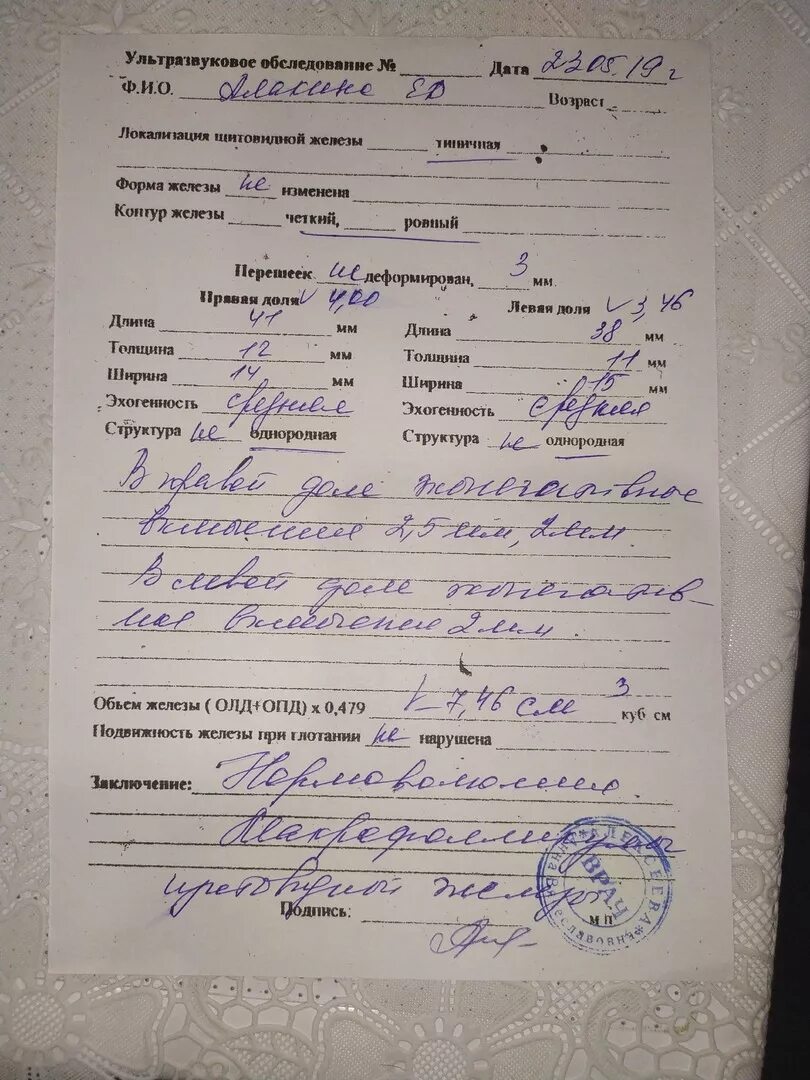 Ультразвуковое обследование № Дата 23.05.19 г
Ф.И.О. ЕД Возраст
Локализация щитовидной железы типичная
Форма железы не изменена
Контур железы четкий, ровный
Перешеек не деформирован, 3 мм
Правая доля V 4,00 Левая доля V 3,46
Длина 41 мм Длина 38 мм
Толщина 12 мм Толщина 11 мм
Ширина 14 мм Ширина 15 мм
Эхогенность средняя Эхогенность средняя
Структура не однородная Структура не однородная
В правой доле эхонегативные
включения 2,5 мм, 2 мм.
В левой доле эхонегатив-
ное включение 2 мм.
Объем железы ( ОЛД+ОПД) х 0,479 V – 7,46 см 3 куб см
Подвижность железы при глотании не нарушена
Заключение: Нормоволюмия.
Макрофолликулы
щитовидной железы.
Подпись: МП
ВРАЧ АЛЕКСЕЕВА